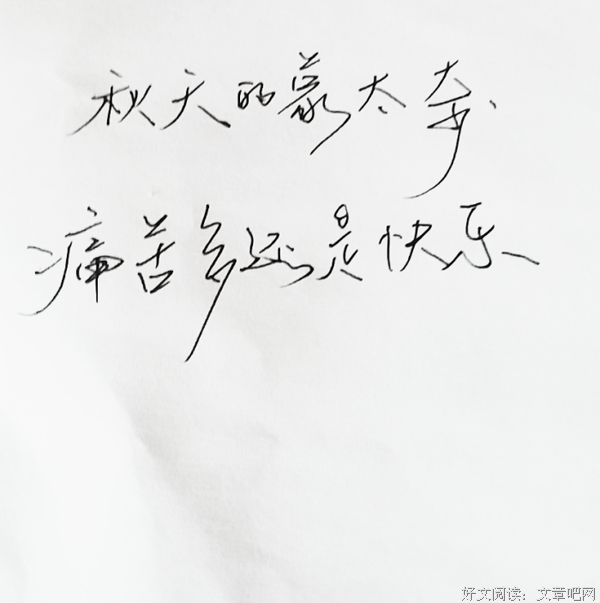 秋天的蒙太奇
痛苦多还是快乐
好文阅读：文章吧网